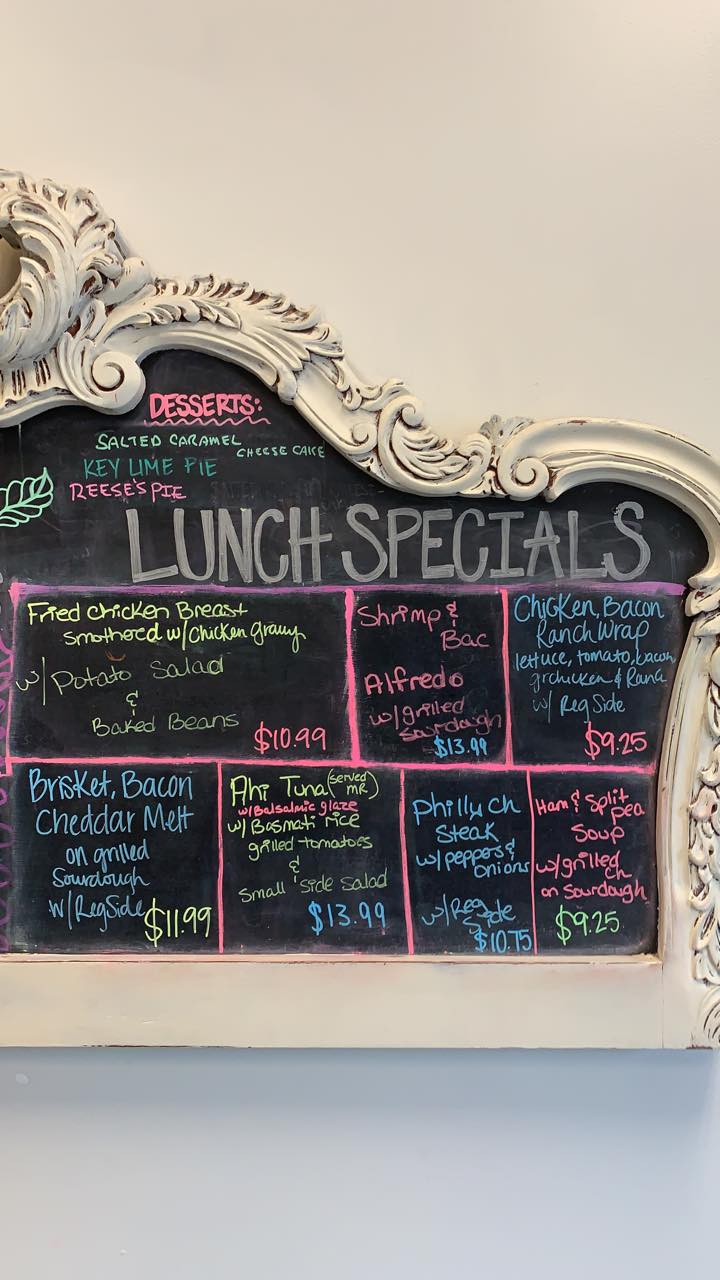 DESSERTS:
SALTED CARAMEL
CHEESE CAKE
KEY LIME PIE
REESE'S PIE
LUNCH SPECIALS
Fried Chicken Breast
smothered w/Chicken gravy
w/ Potato Salad
&
Baked Beans
$10.99
Shrimp &
Bac
Alfredo
w/grilled
sourdough
$13.99
Chicken, Bacon
Ranch Wrap
lettuce, tomato, bacon,
gr chicken & Ranc
w/ Reg Side
$9.25
Brisket, Bacon
Cheddar Melt
on grilled
Sourdough
w/ Reg Side
$11.99
Ahi Tuna (served MR)
w/Balsalmic glaze
w/ Basmati rice
grilled tomatoes
&
Small side salad
$13.99
Philly Ch
Steak
w/peppers &
onions
w/ Reg
Side
$10.75
Ham & Split
pea
Soup
w/grilled
ch
on Sourdough
$9.25